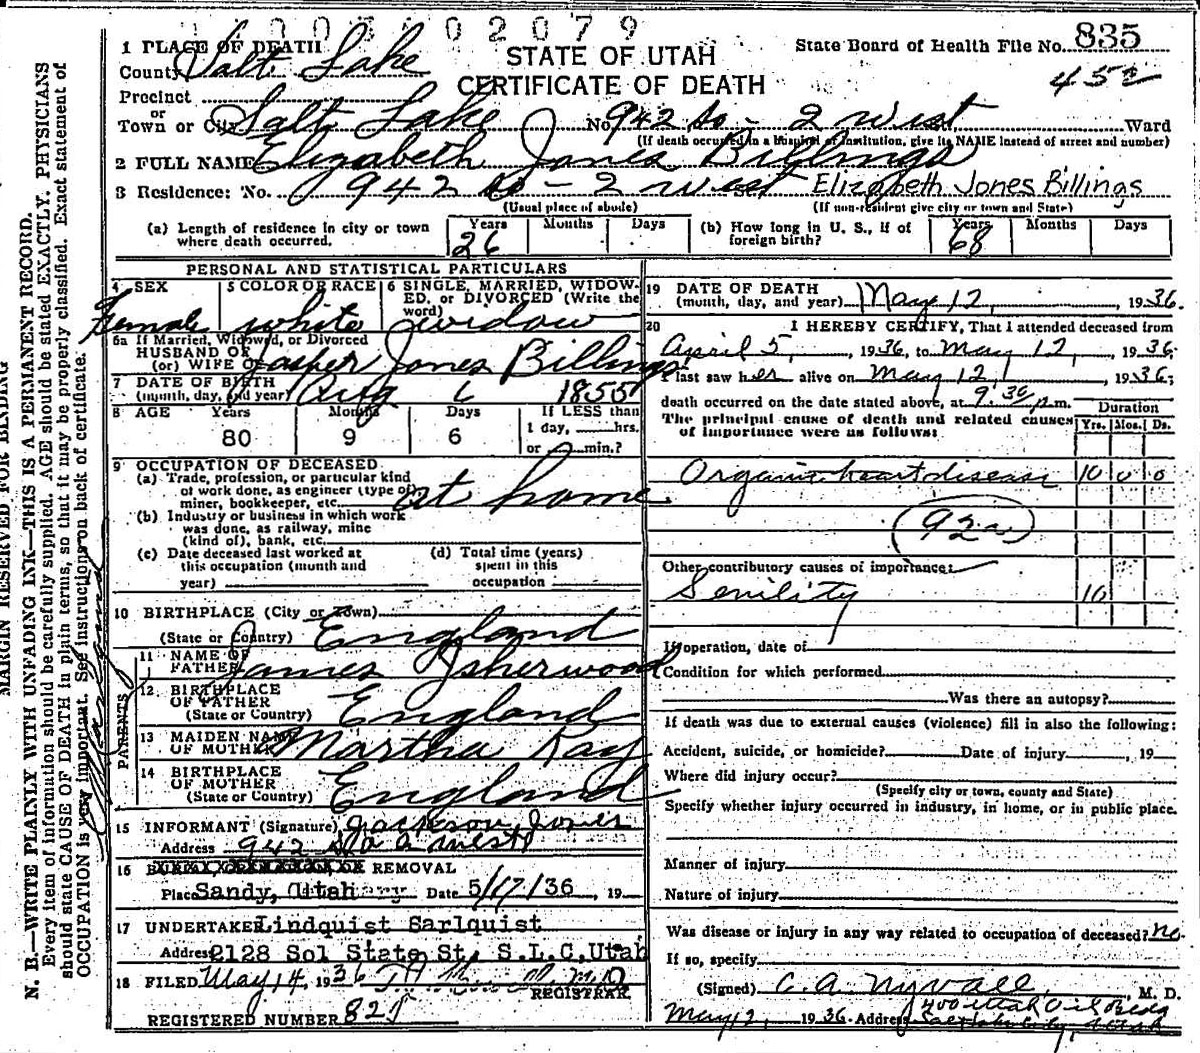 1 3 0 5 4 0 2 0 7 9
STATE OF UTAH
CERTIFICATE OF DEATH
State Board of Health File No. 835
1 PLACE OF DEATH
County Salt Lake
Precinct
or
Town or City Salt Lake No. 942 So - 2 West St., Ward
(If death occurred in a hospital or institution, give its NAME instead of street and number)
2 FULL NAME Elizabeth Jones Billings
3 Residence: No. 942 So - 2 West Elizabeth Jones Billings
(Usual place of abode) (If non-resident give city or town and State)
(a) Length of residence in city or town where death occurred. Years 26 Months Days
(b) How long in U. S., if of foreign birth? Years 68 Months Days
PERSONAL AND STATISTICAL PARTICULARS
4 SEX Female
5 COLOR OR RACE white
6 SINGLE, MARRIED, WIDOWED, or DIVORCED (Write the word) widow
6a If Married, Widowed, or Divorced
HUSBAND OF
(or) WIFE OF Jasper Jones Billings
7 DATE OF BIRTH
(month, day, and year) Aug 6 1855
8 AGE Years 80 Months 9 Days 6 If LESS than 1 day, hrs. or min.?
9 OCCUPATION OF DECEASED
(a) Trade, profession, or particular kind of work done, as engineer (type of) miner, bookkeeper, etc. at home
(b) Industry or business in which work was done, as railway, mine (kind of), bank, etc.
(c) Date deceased last worked at this occupation (month and year)
(d) Total time (years) spent in this occupation
10 BIRTHPLACE (City or Town)
(State or Country) England
PARENTS
11 NAME OF FATHER James Isherwood
12 BIRTHPLACE OF FATHER
(State or Country) England
13 MAIDEN NAME OF MOTHER Martha Kay
14 BIRTHPLACE OF MOTHER
(State or Country) England
15 INFORMANT (Signature) Jackson Jones
Address 942 So 2 West
16 REMOVAL
Place Sandy, Utah Date 5/17/36, 19
17 UNDERTAKER Lindquist Sarlquist
Address 2128 Sol State St., S.L.C, Utah
18 FILED May 14, 1936
REGISTRAR
REGISTERED NUMBER 825
19 DATE OF DEATH
(month, day, and year) May 12, 1936.
20 I HEREBY CERTIFY, That I attended deceased from
April 5, 1936, to May 12, 1936;
I last saw her alive on May 12, 1936;
death occurred on the date stated above, at 9.30 p.m.
The principal cause of death and related causes of importance were as follows:
Duration
Yrs. Mos. Ds.
Organic heart disease 10 0 0
92a
Other contributory causes of importance:
Senility 10
If operation, date of
Condition for which performed
Was there an autopsy?
If death was due to external causes (violence) fill in also the following:
Accident, suicide, or homicide? Date of injury, 19
Where did injury occur?
(Specify city or town, county and State)
Specify whether injury occurred in industry, in home, or in public place.
Manner of injury
Nature of injury
Was disease or injury in any way related to occupation of deceased? no.
If so, specify
(Signed) C. A. Nyvall, M. D.
May 12, 1936. Address 400 Utah Oil Bldg
Salt Lake City, Utah
MARGIN RESERVED FOR BINDING
N. B.—WRITE PLAINLY WITH UNFADING INK—THIS IS A PERMANENT RECORD.
Every item of information should be carefully supplied. AGE should be stated EXACTLY. PHYSICIANS
should state CAUSE OF DEATH in plain terms, so that it may be properly classified. Exact statement of
OCCUPATION is very important. See instructions on back of certificate.